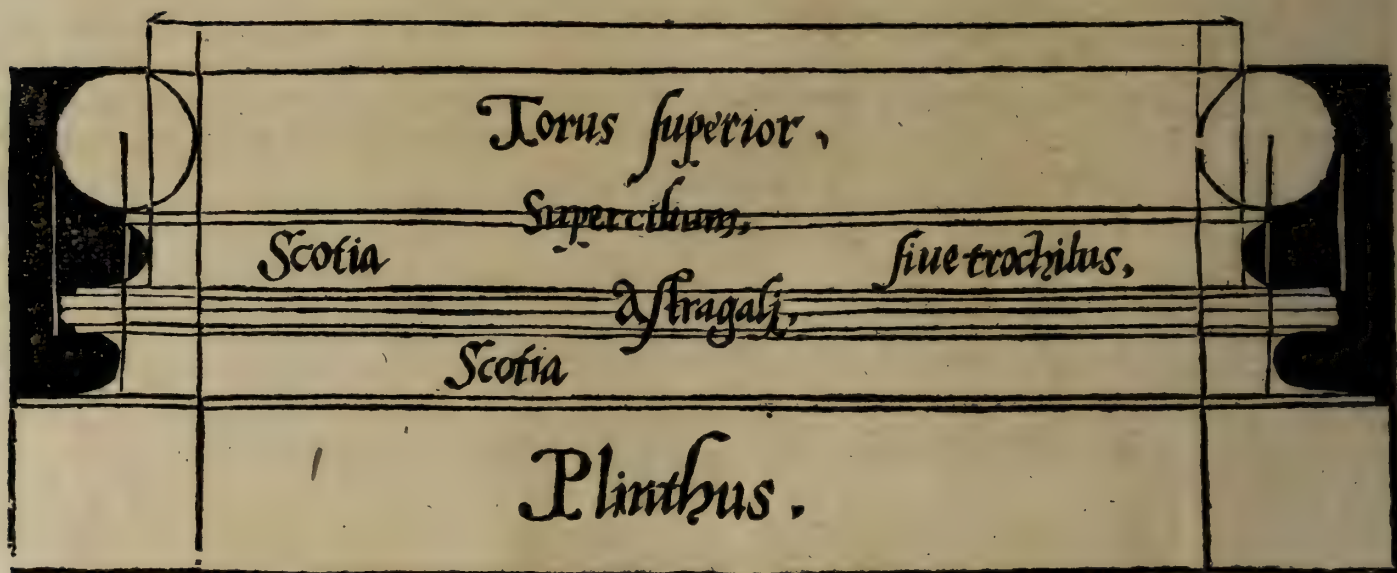 Torus ſuperior.
Supercilium,
Scotia ſiue trochilus,
Aſtragalj,
Scotia
Plinthus.